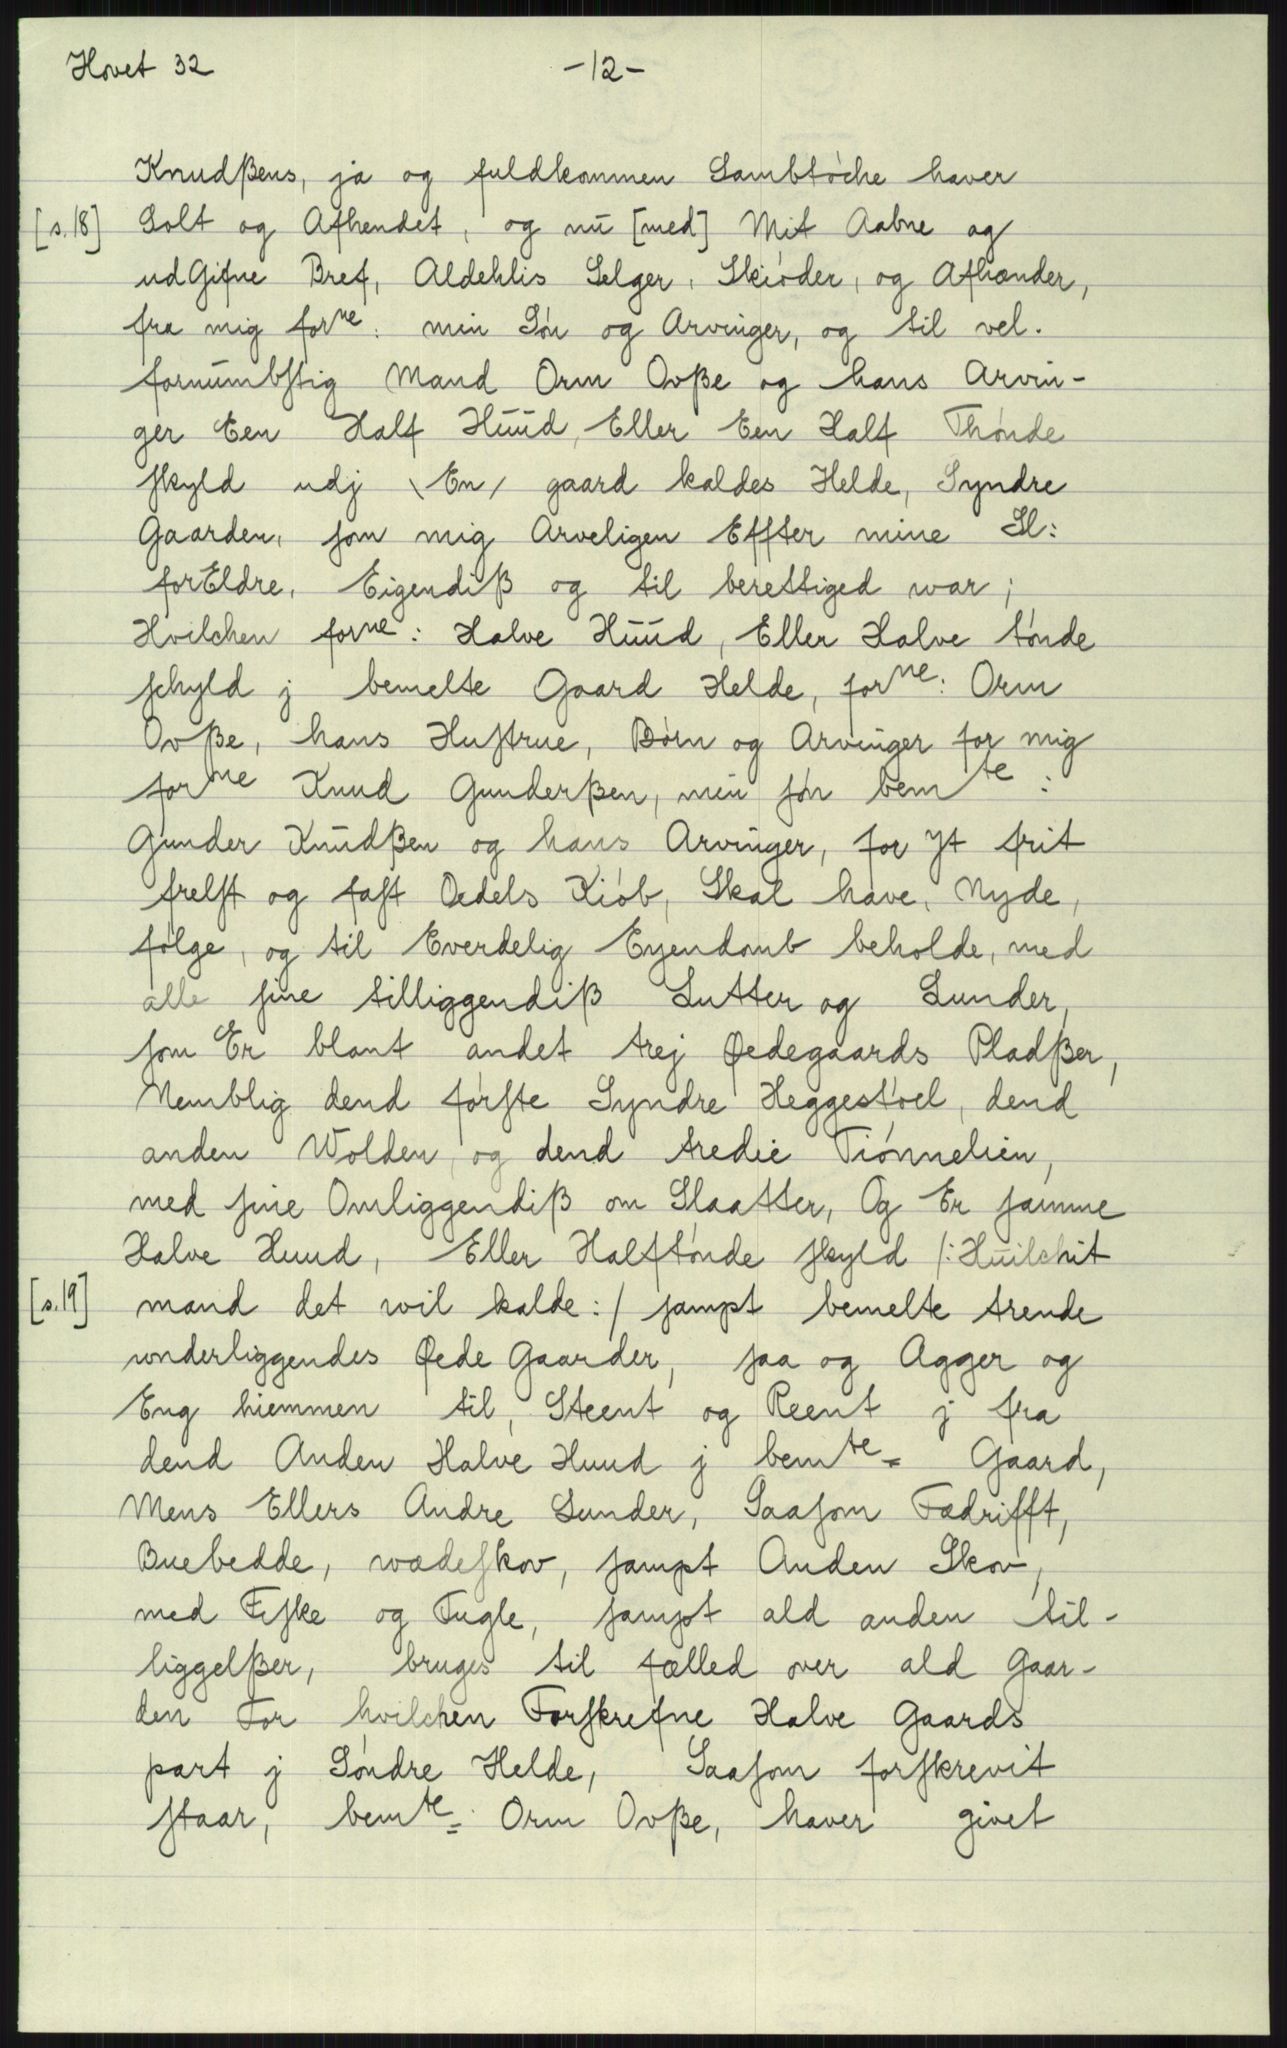 Hovet 32 -12-
Knudßens, ja og fuldkommen Sambtøche haver
[s.18] Solt og Afhendet, og nū [med] Mit Aabne og
udGifne Bref, Aldehlis Selger, Skiøder, og Afhænder,
fra mig forne: min Søn og Arvinger, og til vel-
fornūmbstig Mand Orm Ovße og hans Arvin-
ger Een Half Hūūd, Eller Een Half Thønde
skyld udj \En/ gaard kaldes Helde, Syndre
Gaarden, som mig Arveligen Effter mine Sl:
forEldre, Eigendiß og til berettiged war;
Hvilchen forne: Halve Hūūd, Eller Halve tønde
schyld j bemelte Gaard Helde, forne: Orm
Ovße, hans Hustrue, Børn og Arvinger for mig
forne Knud Gunderßen, min søn bemte:
Gunder Knūdßen og hans Arvinger, for yt frit
frelst og fast Oedels Kiøb, Skal have, Nyde,
følge, og til Everdelig Eyendomb beholde, med
alle sine tilliggendiß Lutter og Lunder,
som Er blant andet trej Øedegaards Pladßer,
Nemblig dend første Syndre Heggestøel, dend
anden Wolden, og dend tredie Tiønnelien,
med sine Omliggendiß om Slaatter, Og Er samme
Halve Huud, Eller Halftønde skyld /: Hūilchit
[s.19] mand det wil kalde:/ sampt bemelte trende
underliggendes Øede Gaarder, saa og Agger og
Eng hiemmen til, Steent og Reent j fra
dend Anden Halve Huud j bemte= Gaard,
Mens Ellers Andre Lunder, Saasom Fædrifft,
Buebedde, wædeskov, sampt Anden Skov,
med Fiske og Fugle, sampt ald anden til-
liggelßer, bruges til fælled over ald Gaar-
den For hvilchen Forskrefne Halve Gaards
part j Søndre Helde, Saasom forskrevit
staar, bemte= Orm Ovße, haver givet